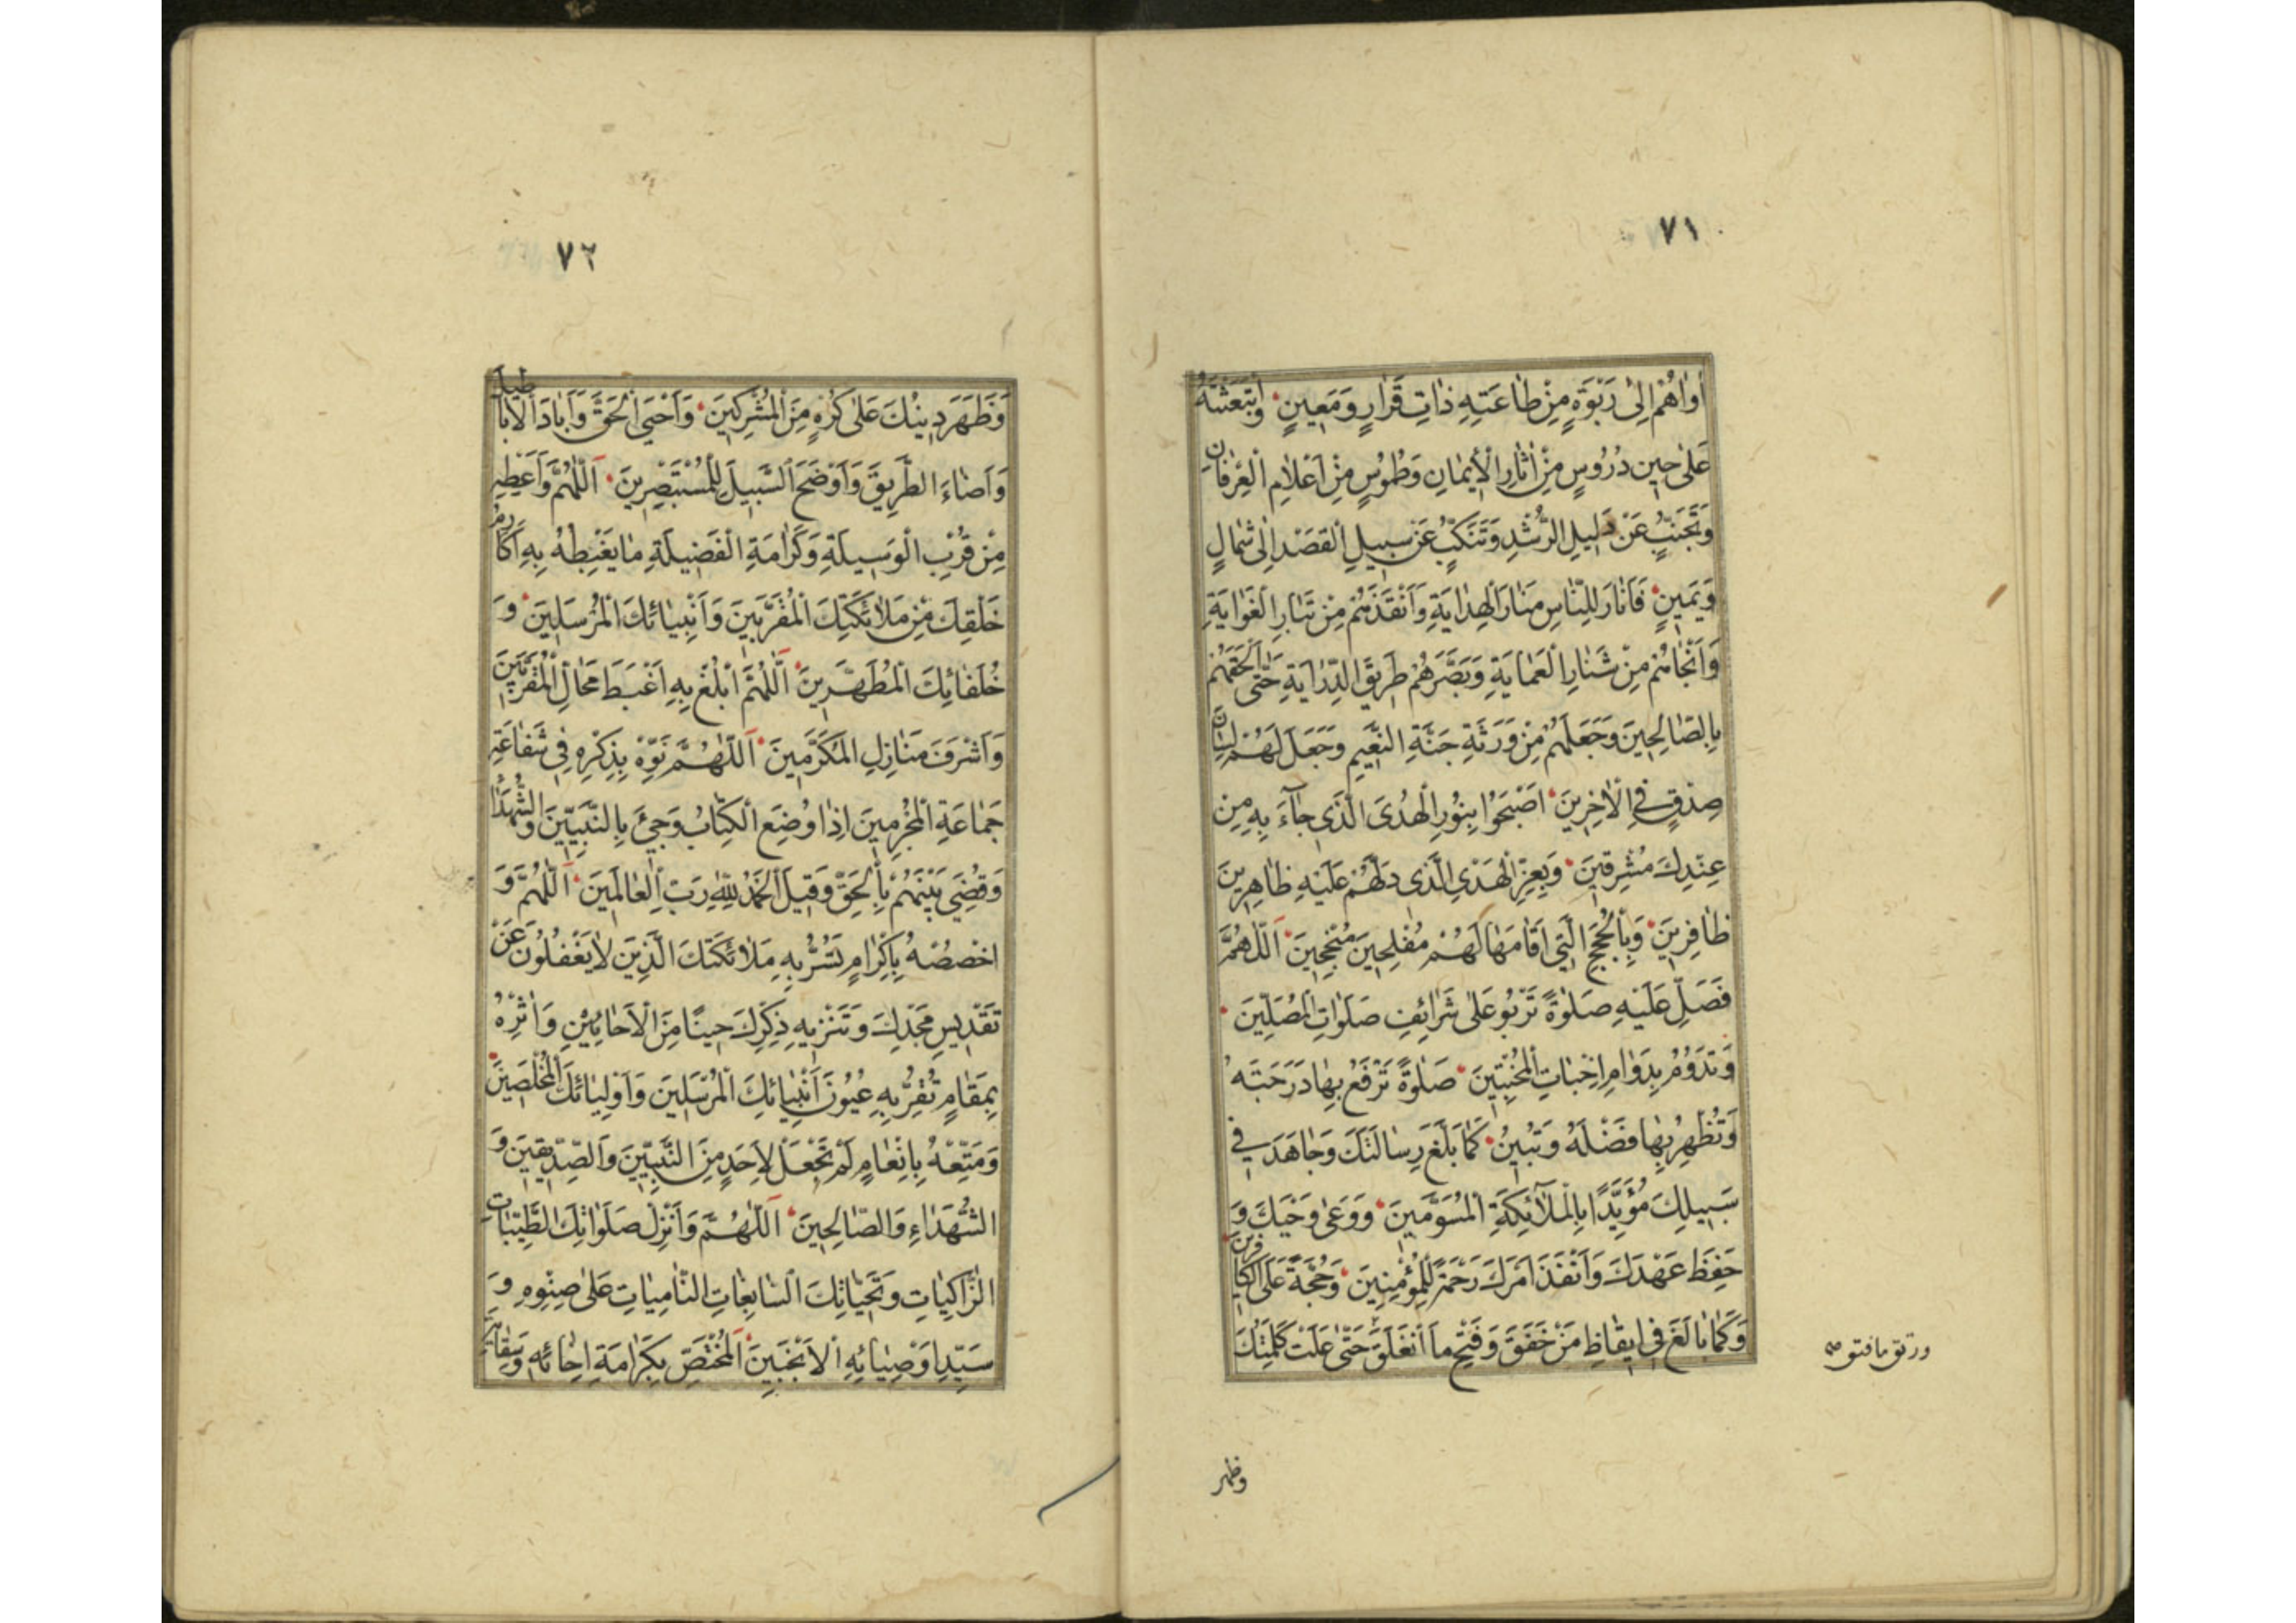 ٧١
أٰوٰاهُمْ اِلىٰ رَبْوَةٍ مِنْ طٰاعَتِهِ ذٰاتِ قَرٰارٍ وَمَعِينٍ وَابْتَعَثْتَهُ
عَلىٰ حِينِ دُرُوسٍ مِنْ اٰثٰارِ الْاِيمٰانِ وَطُمُوسٍ مِنْ اَعْلاٰمِ الْعِرْفٰانِ
وَتَجَنُّبٍ عَنْ دَلِيلِ الرُّشْدِ وَتَنَكُّبٍ عَنْ سَبِيلِ الْقَصْدِ اِلىٰ شِمٰالٍ
وَيَمِينٍ فَاَنٰارَ لِلنّٰاسِ مَنٰارَ الْهِدٰايَةِ وَاَنْقَذَهُمْ مِنْ تَبٰارِ الْغَوٰايَةِ
وَاَنْجٰاهُمْ مِنْ شَنٰارِ الْعَمٰايَةِ وَبَصَّرَهُمْ طَرِيقَ الدِّرٰايَةِ حَتّىٰ اَلْحَقَهُمْ
بِالصّٰالِحِينَ وَجَعَلَهُمْ مِنْ وَرَثَةِ جَنَّةِ النَّعِيمِ وَجَعَلَ لَهُمْ لِسٰانَ
صِدْقٍ فِي الْاٰخِرِينَ اَصْبَحُوا بِنُورِ الْهُدَى الَّذِي جٰآءَ بِهِ مِنْ
عِنْدِكَ مُشْرِقِينَ وَبِعِزِّ الْهَدْيِ الَّذِي دَلَّهُمْ عَلَيْهِ ظٰاهِرِينَ
ظٰافِرِينَ وَبِالْحُجَجِ الَّتِي اَقٰامَهٰا لَهُمْ مُفْلِحِينَ مُنْجِحِينَ اَللّٰهُمَّ
فَصَلِّ عَلَيْهِ صَلٰوةً تَرْبُو عَلىٰ شَرٰائِفِ صَلَوٰاتِ الْمُصَلِّينَ
وَتَدُومُ بِدَوٰامِ اِخْبٰاتِ الْمُخْبِتِينَ صَلٰوةً تَرْفَعُ بِهٰا دَرَجَتَهُ
وَتُظْهِرُ بِهٰا فَضْلَهُ وَتُبِينُ كَمٰا بَلَّغَ رِسٰالَتَكَ وَجٰاهَدَ فِي
سَبِيلِكَ مُؤَيَّدًا بِالْمَلاٰئِكَةِ الْمُسَوَّمِينَ وَوَعىٰ وَحْيَكَ وَ
حَفِظَ عَهْدَكَ وَاَنْفَذَ اَمْرَكَ رَحْمَةً لِلْمُؤْمِنِينَ وَحُجَّةً عَلَى الْكٰافِرِينَ
وَكَمٰا بٰالَغَ فِي اِيقٰاظِ مَنْ خَفَقَ وَفَتْحِ مٰا انْغَلَقَ حَتّىٰ عَلَتْ كَلِمَتُكَ
ورتق ما فتق
وظهر
٧٢
وَظَهَرَ دِينُكَ عَلىٰ كُرْهٍ مِنَ الْمُشْرِكِينَ وَاَحْيَى الْحَقَّ وَاَبٰادَ الْاَبٰاطِيلَ
وَاَضٰاءَ الطَّرِيقَ وَاَوْضَحَ السَّبِيلَ لِلْمُسْتَبْصِرِينَ اَللّٰهُمَّ وَاَعْطِهِ
مِنْ قُرْبِ الْوَسِيلَةِ وَكَرٰامَةِ الْفَضِيلَةِ مٰا يَغْبِطُهُ بِهِ اَكٰارِمُ
خَلْقِكَ مِنْ مَلاٰئِكَتِكَ الْمُقَرَّبِينَ وَاَنْبِيٰائِكَ الْمُرْسَلِينَ وَ
خُلَفٰائِكَ الْمُطَهَّرِينَ اَللّٰهُمَّ اَبْلِغْ بِهِ اَغْبَطَ مَحٰالِّ الْمُقَرَّبِينَ
وَاَشْرَفَ مَنٰازِلِ الْمُكَرَّمِينَ اَللّٰهُمَّ نَوِّهْ بِذِكْرِهِ فِي شَفٰاعَةِ
جَمٰاعَةِ الْمُجْرِمِينَ اِذٰا وُضِعَ الْكِتٰابُ وَجِيْءَ بِالنَّبِيِّينَ وَالشُّهَدٰا
وَقُضِيَ بَيْنَهُمْ بِالْحَقِّ وَقِيلَ الْحَمْدُ لِلّٰهِ رَبِّ الْعٰالَمِينَ اَللّٰهُمَّ وَ
اخْصُصْهُ بِاِكْرٰامٍ تَسُرُّ بِهِ مَلاٰئِكَتَكَ الَّذِينَ لاٰ يَغْفُلُونَ عَنْ
تَقْدِيسِ مَجْدِكَ وَتَنْزِيهِ ذِكْرِكَ حِينًا مِنَ الْاَحٰايِينِ وَاٰثِرْهُ
بِمَقٰامٍ تُقِرُّ بِهِ عُيُونَ اَنْبِيٰائِكَ الْمُرْسَلِينَ وَاَوْلِيٰائِكَ الْمُخْلَصِينَ
وَمَتِّعْهُ بِاِنْعٰامٍ لَمْ تَجْعَلْ لِاَحَدٍ مِنَ النَّبِيِّينَ وَالصِّدِّيقِينَ وَ
الشُّهَدٰاءِ وَالصّٰالِحِينَ اَللّٰهُمَّ وَاَنْزِلْ صَلَوٰاتِكَ الطَّيِّبٰاتِ
الزّٰاكِيٰاتِ وَتَحِيّٰاتِكَ السّٰابِغٰاتِ النّٰامِيٰاتِ عَلىٰ صِنْوِهِ وَ
سَيِّدِ اَوْصِيٰائِهِ الْاَنْجَبِينَ اَلْمُخْتَصِّ بِكَرٰامَةِ اِخٰائِهِ